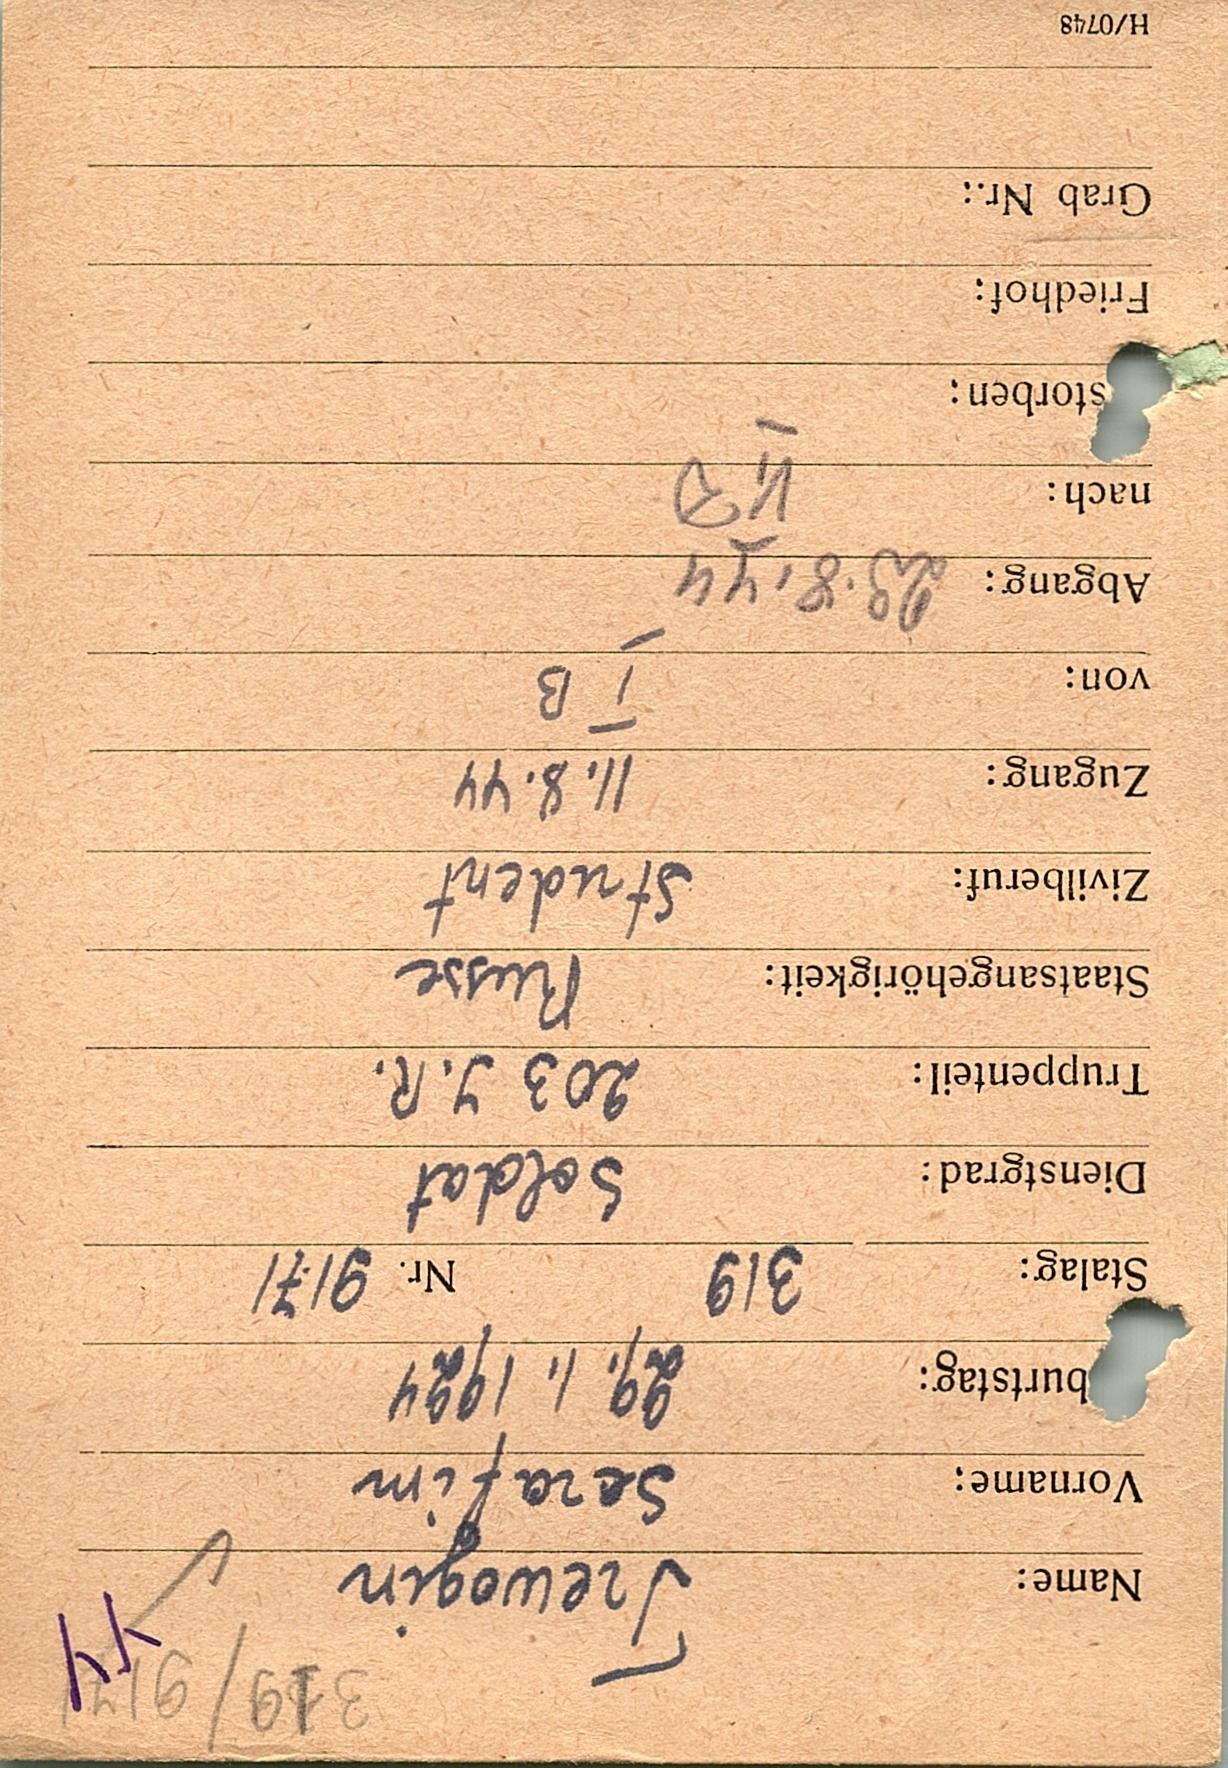 319/9171
44
Name: Trewogin
Vorname: Serafim
burtstag: 29.1.1924
Stalag: 319 Nr. 9171
Dienstgrad: Soldat
Truppenteil: 203 J.R.
Staatsangehörigkeit: Russe
Zivilberuf: Student
Zugang: 11.8.44
von: I B
Abgang: 23.8.44
nach:
storben:
Friedhof:
Grab Nr.:
H/0748